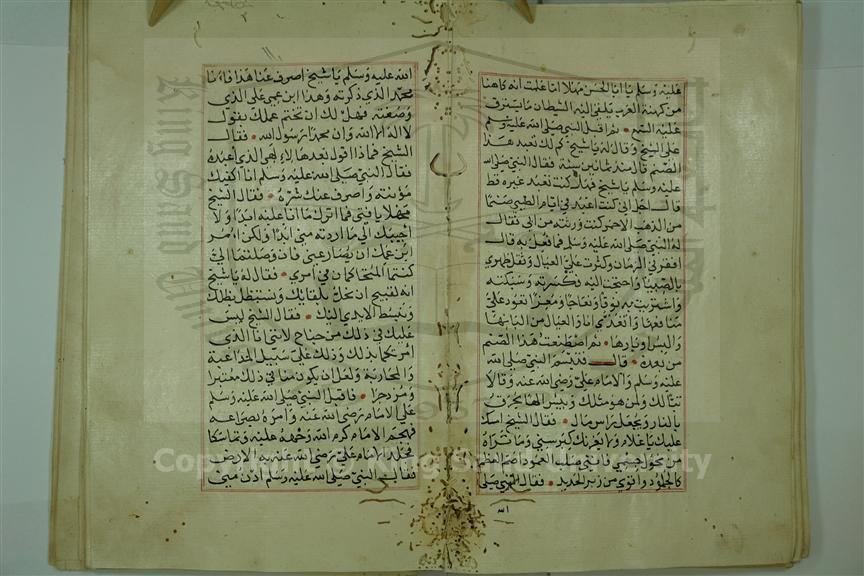 عليه وسلم يا ابا الحسن مهلا انا علمت انه كاهنا
من كهنة العرب يلقى اليه الشيطان ما يسترق
عليه السمع ثم اقبل النبي صلى الله عليه وسلم
على الشيخ وقال له يا شيخ كم لك تعبد هذا
الصنم قال منذ ثمانين سنة فقال النبي صلى الله
عليه وسلم يا شيخ فهل كنت تعبد غيره قط
قال اجل اني كنت اعبد في ايام الصبي صنما
من الذهب الاحمر كنت ورثته من ابي فقال
له النبي صلى الله عليه وسلم فما فعل به قال
افقرني الزمان وكثرت علي العيال وثقل ظهري
بالصبيا واحتجت اليه فكسرته وسبكته
واشتريت به نوقا ونعاجا ومعيزا نعود علي
منافعها واتغدى انا والعيال من البانها
والبس اوبارها ثم اصطنعت هذا الصنم
من بعده قال فتبسم النبي صلى الله
عليه وسلم والامام علي رضي الله عنه وقالا
تبا لك ولمن هو مثلك وبيس الها يحرق
بالنار ويجعل راس مال فقال الشيخ امسك
عليك يا غلام ولا يغرنك كبر سني وما تراه
من نحول جسمي فانني صليب العمود اصم العظم
كالجلمود واقوى من زبر الحديد فقال النبي صلى
الله
الله عليه وسلم يا شيخ اصرف عنا هذا فانا
محمد الذي ذكرته وهذا ابن عمي علي الذي
وصفته فهل لك ان تختم عملك بقول
لا اله الا الله وان محمدا رسول الله فقال
الشيخ فماذا اقول بعدها لالهي الذي اعبده
فقال النبي صلى الله عليه وسلم انا اكفيك
مؤنته واصرف عنك شره فقال الشيخ
مهلا يا فتى فما اترك ما انا عليه ابدا ولا
اجيبك الى ما اردته مني ابدا ولكن امر
ابن عمك ان يصارعني فان وصلتما الي
كنتما المتحاكمان في امري فقال له يا شيخ
انه لقبيح ان نحل بلقايك ونستظل بظلك
ونبسط الايدي اليك فقال الشيخ ليس
عليك في ذلك من جناح لانني انا الذي
امرتكما بذلك وذلك على سبيل المداعبة
والمحاربة ولعل ان يكون منا في ذلك معتبرا
ومزدجرا فاقبل النبي صلى الله عليه وسلم
على الامام رضي الله عنه وامره بصراعه
فهجم الامام كرم الله وجهه عليه وتماسكا
فجلد الامام علي رضي الله عنه به الارض
فقال النبي صلى الله عليه وسلم ادن مني
Copyright © King Saud University